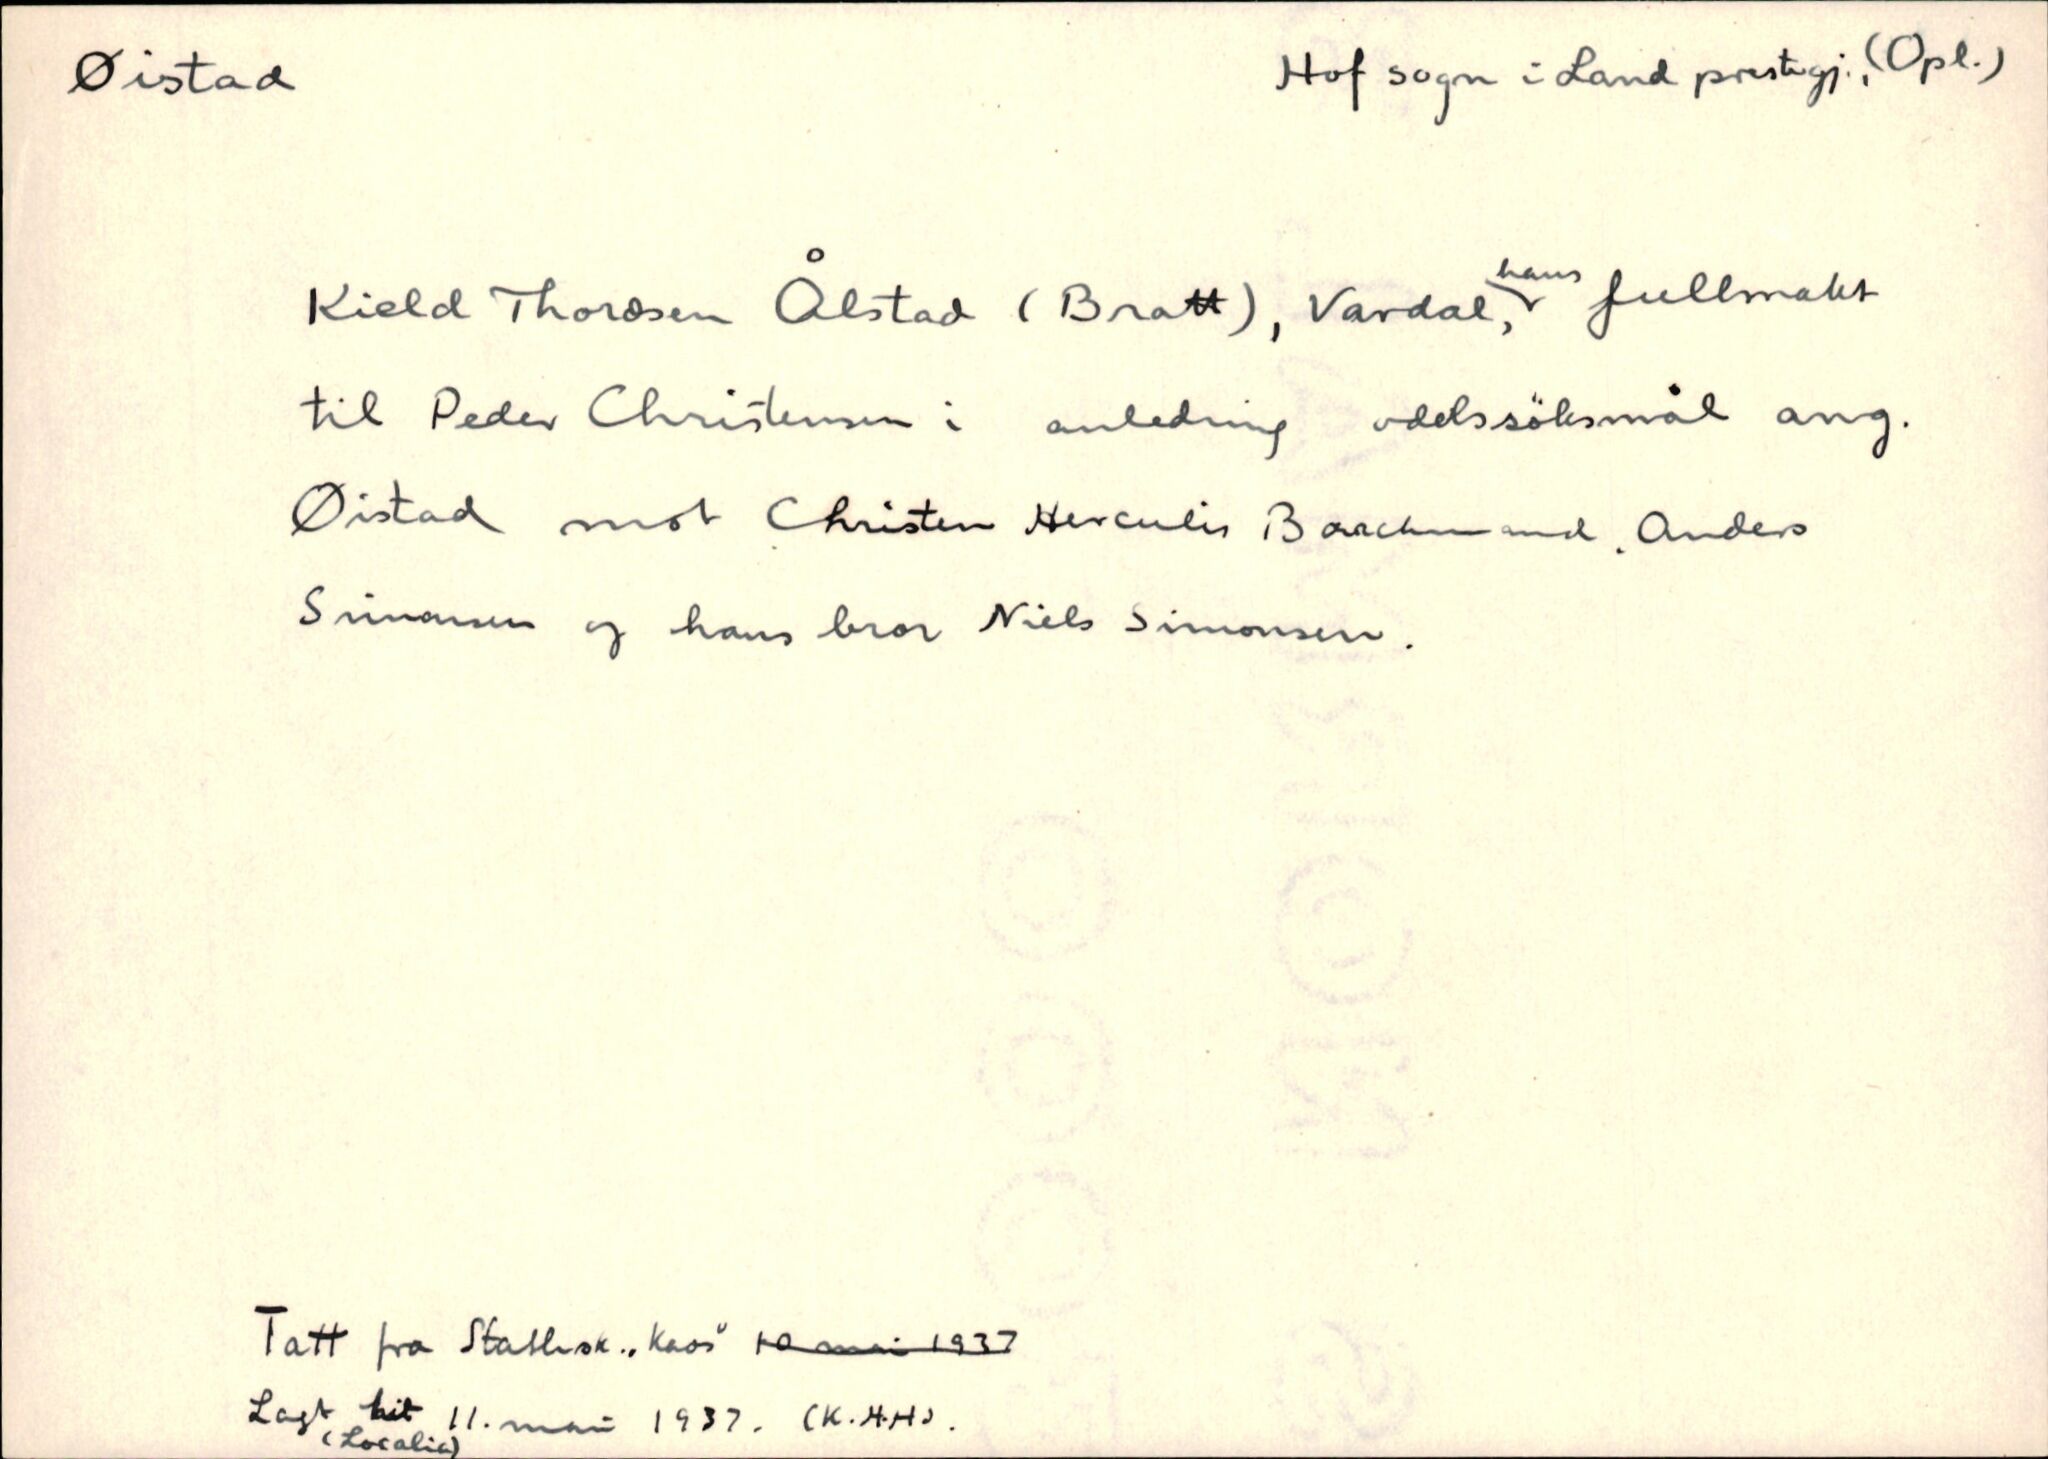 Øistad
Hof sogn i Land prestegj., (Opl.)
Kield Thordsen Ålstad (Bratt), Vardal, hans fullmakt
til Peder Christensen i anledning odelssöksmål ang.
Øistad mot Christen Herculis Barchmand, Anders
Simonsen og hans bror Niels Simonsen.
Tatt fra „Kaos“ 10 mai 1937
Lagt hit 11. mai 1937. (K.H.H).
(Localia)